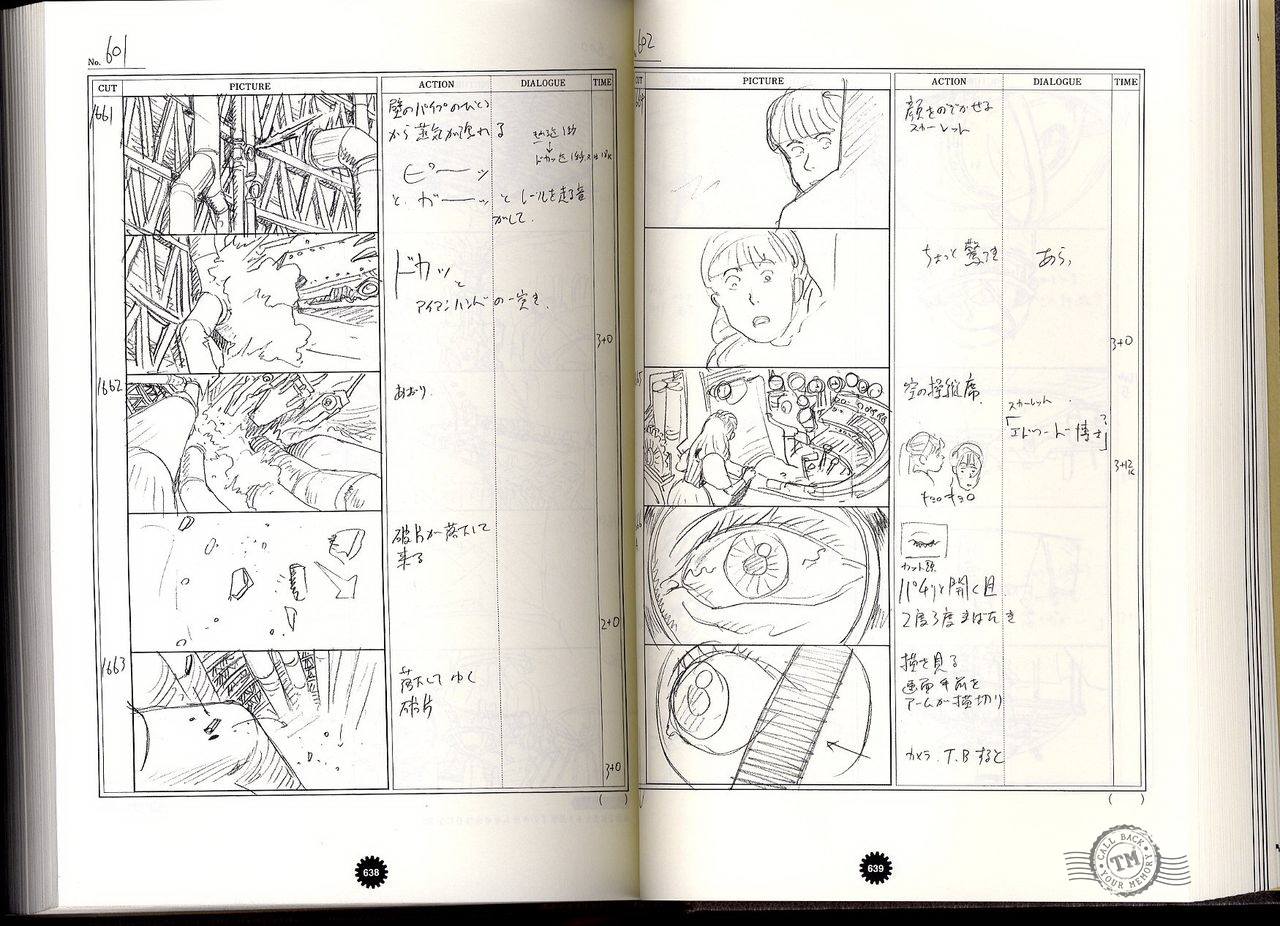 No. 601
CUT PICTURE ACTION DIALOGUE TIME
1661
壁のパイプのひとつ
から蒸気が洩れる
ピーーッ
と ガーーッ と レールを走る音
がして.
ドカッ
と
アイアンハンドの一突き.
3+0
1662
あおり.
破片が落下して
来る
2+0
1663
落下してゆく
破片
3+0
( )
638
602
PICTURE ACTION DIALOGUE TIME
顔をのぞかせる
スカーレット
ちょっと驚き
あら,
3+0
空の操縦席.
スカーレット
「エドワード博士?」
キョロキョロ
3+12
K
カット頭
パチリと開く目
2度3度まばたき
横を見る
画面手前を
アームが横切り
カメラ.T.Bすると
( )
639
CALL BACK
TM
YOUR MEMORY